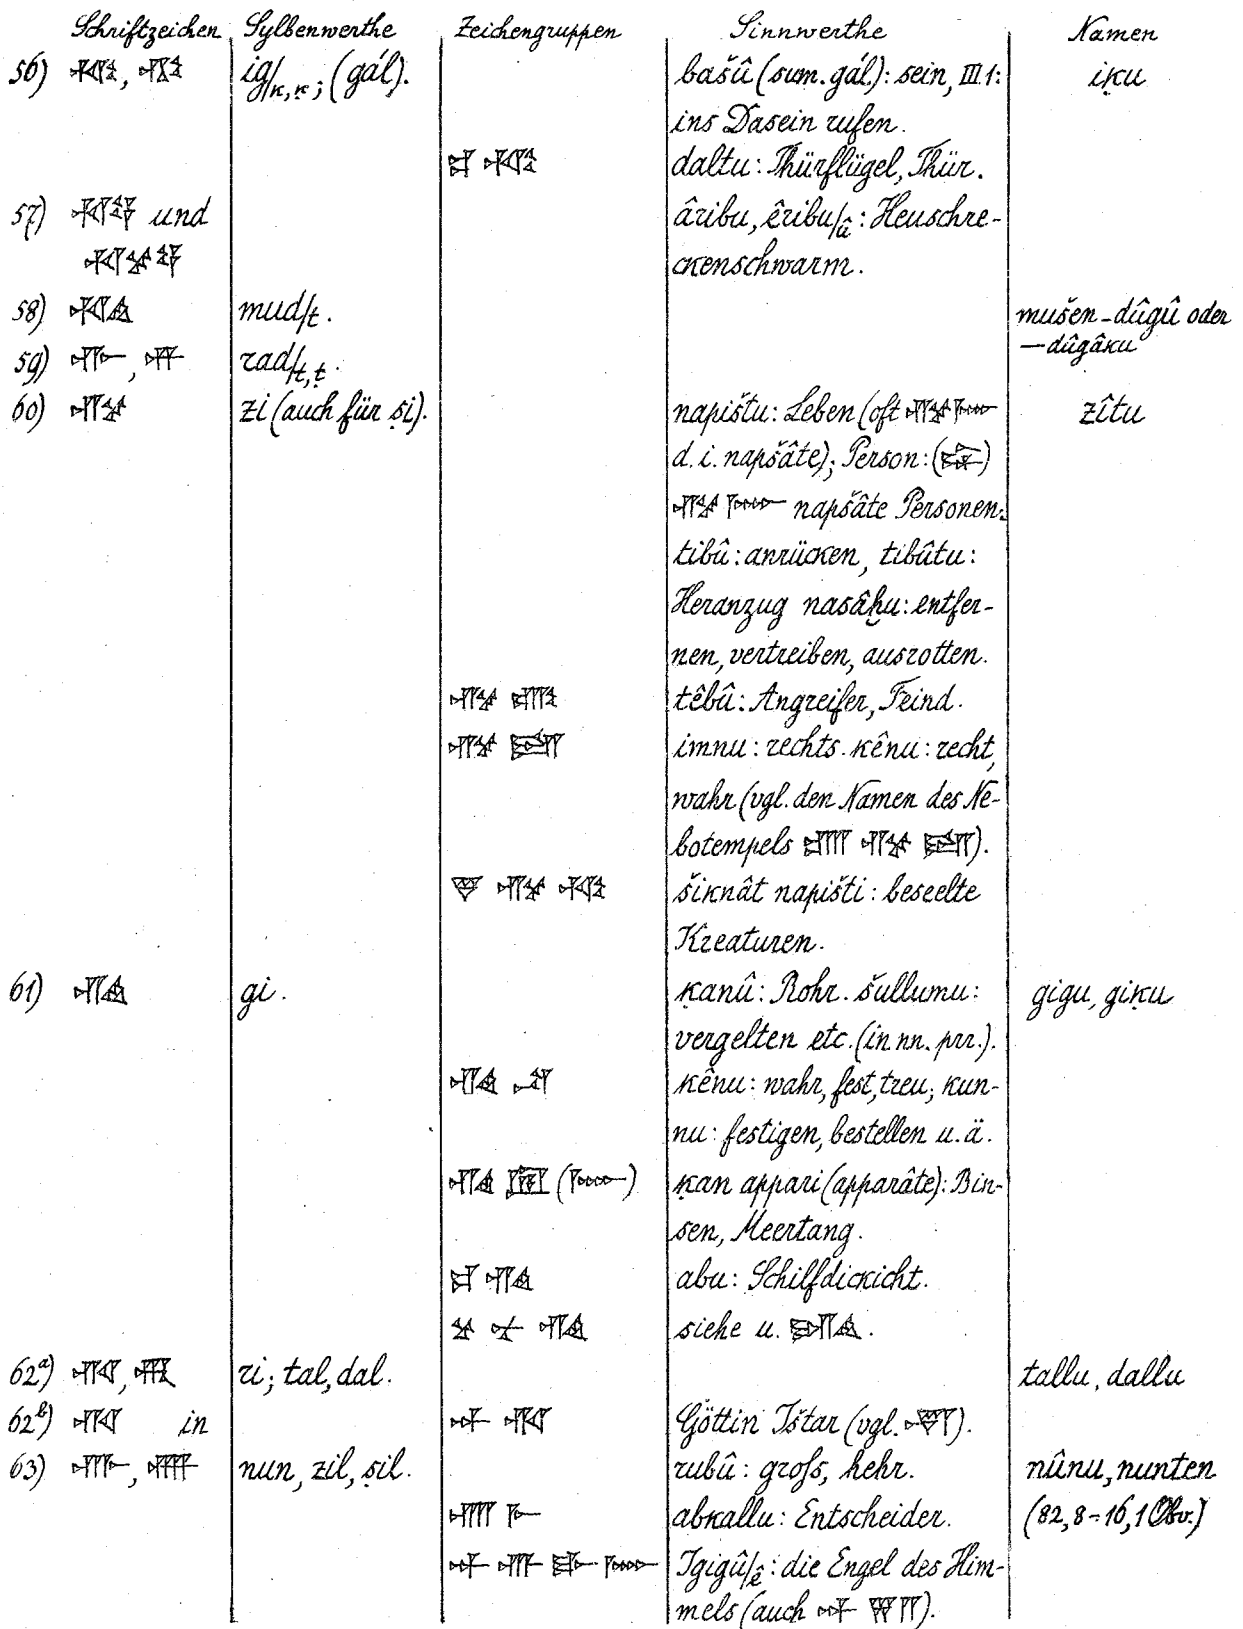 Schriftzeichen Sylbenwerthe Zeichengruppen Sinnwerthe Namen
56) 𒅅, ig/k, ḳ; (gál). bašû (sum. gál): sein, III 1: iḳu
ins Dasein rufen.
𒄑 𒅅 daltu: Thürflügel, Thür.
57) und âribu, êribu/û: Heuschre-
ckenschwarm.
58) 𒄷𒄭 mud/t. mušen-dûgû oder
59) 𒋥, rad/t, ṭ. —dûgâku
60) 𒍣 zi (auch für ṣi). napištu: Leben (oft 𒍣𒈨𒌍 zîtu
d. i. napšâte); Person: ( )
𒍣 𒈨𒌍 napšâte Personen.
tibû: anrücken, tibûtu:
Heranzug nasâḫu: entfer-
nen, vertreiben, ausrotten.
𒍣 𒂵 têbû: Angreifer, Feind.
𒍣 𒁕 imnu: rechts. kênu: recht,
wahr (vgl. den Namen des Ne-
botempels 𒂍 𒍣 𒁕).
𒃻 𒍣 𒅅 šiknât napišti: beseelte
Kreaturen.
61) 𒄀 gi. ḳanû: Rohr. šullumu: gigu, giḳu
vergelten etc. (in nn. prr.).
𒄀 𒈾 kênu: wahr, fest, treu; kun-
nu: festigen, bestellen u. ä.
𒄀 ( ) ḳan appari (apparâte): Bin-
sen, Meertang.
𒄑 𒄀 abu: Schilfdickicht.
𒄀 siehe u. .
62ᵃ) 𒊑, ri; tal, dal. tallu, dallu
62ᵇ) 𒊑 in 𒀭 𒊑 Göttin Ištar (vgl. ).
63) 𒉣, nun, zil, ṣil. rubû: gross, hehr. nûnu, nunten
𒉣 𒈨 abkallu: Entscheider. (82,8-16,1 Obv.)
𒀭 𒉣 𒃲 𒈨𒌍 Igigû/ê: die Engel des Him-
mels (auch 𒀭 ).